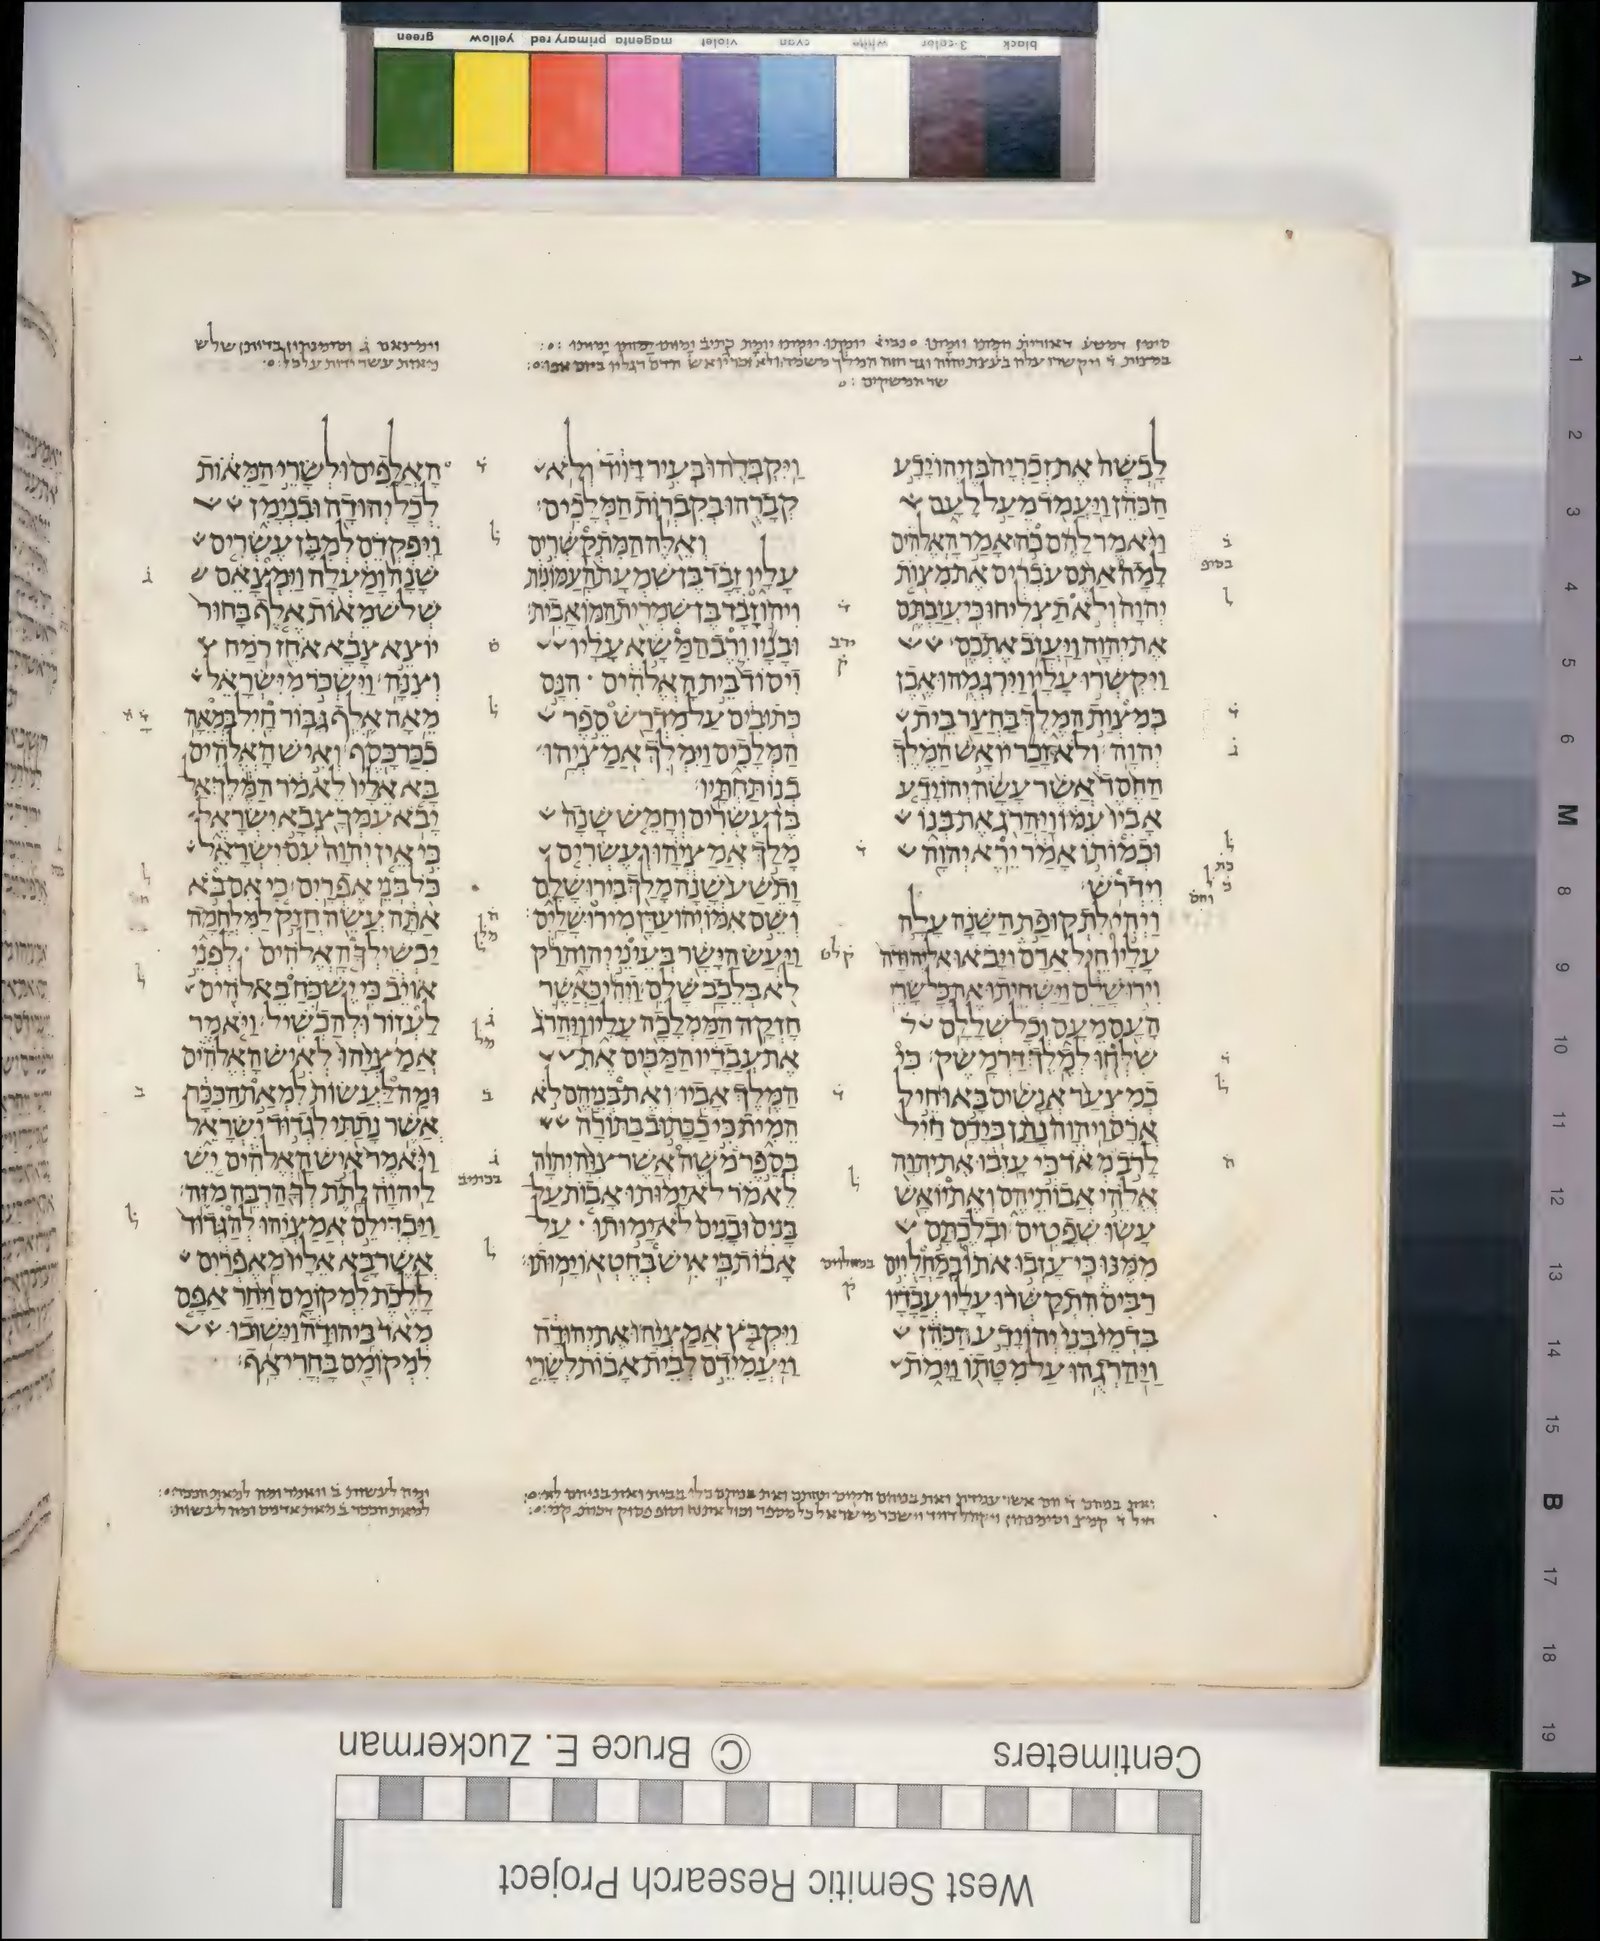 וימצאם ג וסימנהון בדותן שלש
מאות עשר ידות על כל
שר המשקים
לבשה את זכריה בן יהוידע
הכהן ויעמד מעל לעם
ויאמר להם כה אמר האלהים
למה אתם עברים את מצות
יהוה ולא תצליחו כי עזבתם
את יהוה ויעזב אתכם׃
ויקשרו עליו וירגמהו אבן
במצות המלך בחצר בית
יהוה׃ ולא זכר יואש המלך
החסד אשר עשה יהוידע
אביו עמו ויהרג את בנו
וכמותו אמר ירא יהוה
וידרש׃
ויהי לתקופת השנה עלה
עליו חיל ארם ויבאו אל יהודה
וירושלם וישחיתו את כל שרי
העם מעם וכל שללם
שלחו למלך דרמשק׃ כי
במצער אנשים באו חיל
ארם ויהוה נתן בידם חיל
לרב מאד כי עזבו את יהוה
אלהי אבותיהם ואת יואש
עשו שפטים׃ ובלכתם
ממנו כי עזבו אתו במחליים
רבים התקשרו עליו עבדיו
בדמי בני יהוידע הכהן
ויהרגהו על מטתו וימת
ויקברהו בעיר דויד ולא
קברהו בקברות המלכים׃
ואלה המתקשרים
עליו זבד בן שמעת העמונית
ויהוזבד בן שמרית המואבית׃
ובניו ורב המשא עליו
ויסוד בית האלהים הנם
כתובים על מדרש ספר
המלכים וימלך אמציהו
בנו תחתיו׃
בן עשרים וחמש שנה
מלך אמציהו ועשרים
ותשע שנה מלך בירושלם
ושם אמו יהועדן מירושלים׃
ויעש הישר בעיני יהוה רק
לא בלבב שלם׃ ויהי כאשר
חזקה הממלכה עליו ויהרג
את עבדיו המכים את
המלך אביו׃ ואת בניהם לא
המית כי ככתוב בתורה
בספר משה אשר צוה יהוה
לאמר לא ימותו אבות על
בנים ובנים לא ימותו על
אבות כי איש בחטאו ימותו׃
ויקבץ אמציהו את יהודה
ויעמידם לבית אבות לשרי
האלפים ולשרי המאות
לכל יהודה ובנימן
ויפקדם למבן עשרים
שנה ומעלה וימצאם ש
שלש מאות אלף בחור
יוצא צבא אחז רמח צ
וצנה׃ וישכר מישראל
מאה אלף גבור חיל במאה
ככר כסף׃ ואיש האלהים
בא אליו לאמר המלך אל
יבא עמך צבא ישראל
כי אין יהוה עם ישראל
כל בני אפרים׃ כי אם בא
אתה עשה חזק למלחמה
יכשילך האלהים לפני
אויב כי יש כח באלהים
לעזור ולהכשיל׃ ויאמר
אמציהו לאיש האלהים
ומה לעשות למאת הככר
אשר נתתי לגדוד ישראל
ויאמר איש האלהים יש
ליהוה לתת לך הרבה מזה׃
ויבדילם אמציהו להגדוד
אשר בא אליו מאפרים
ללכת למקומם ויחר אפם
מאד ביהודה וישובו
למקומם בחרי אף׃
ומה לעשות ב ויאמר ומה למאת הככר
למאת הככר ב מאת אדנים ומה לעשות
green
yellow
primary red
magenta
violet
cyan
white
3-color
black
A
1
2
3
4
5
6
M
8
9
10
11
12
13
14
15
B
17
18
19
Centimeters
© Bruce E. Zuckerman
West Semitic Research Project